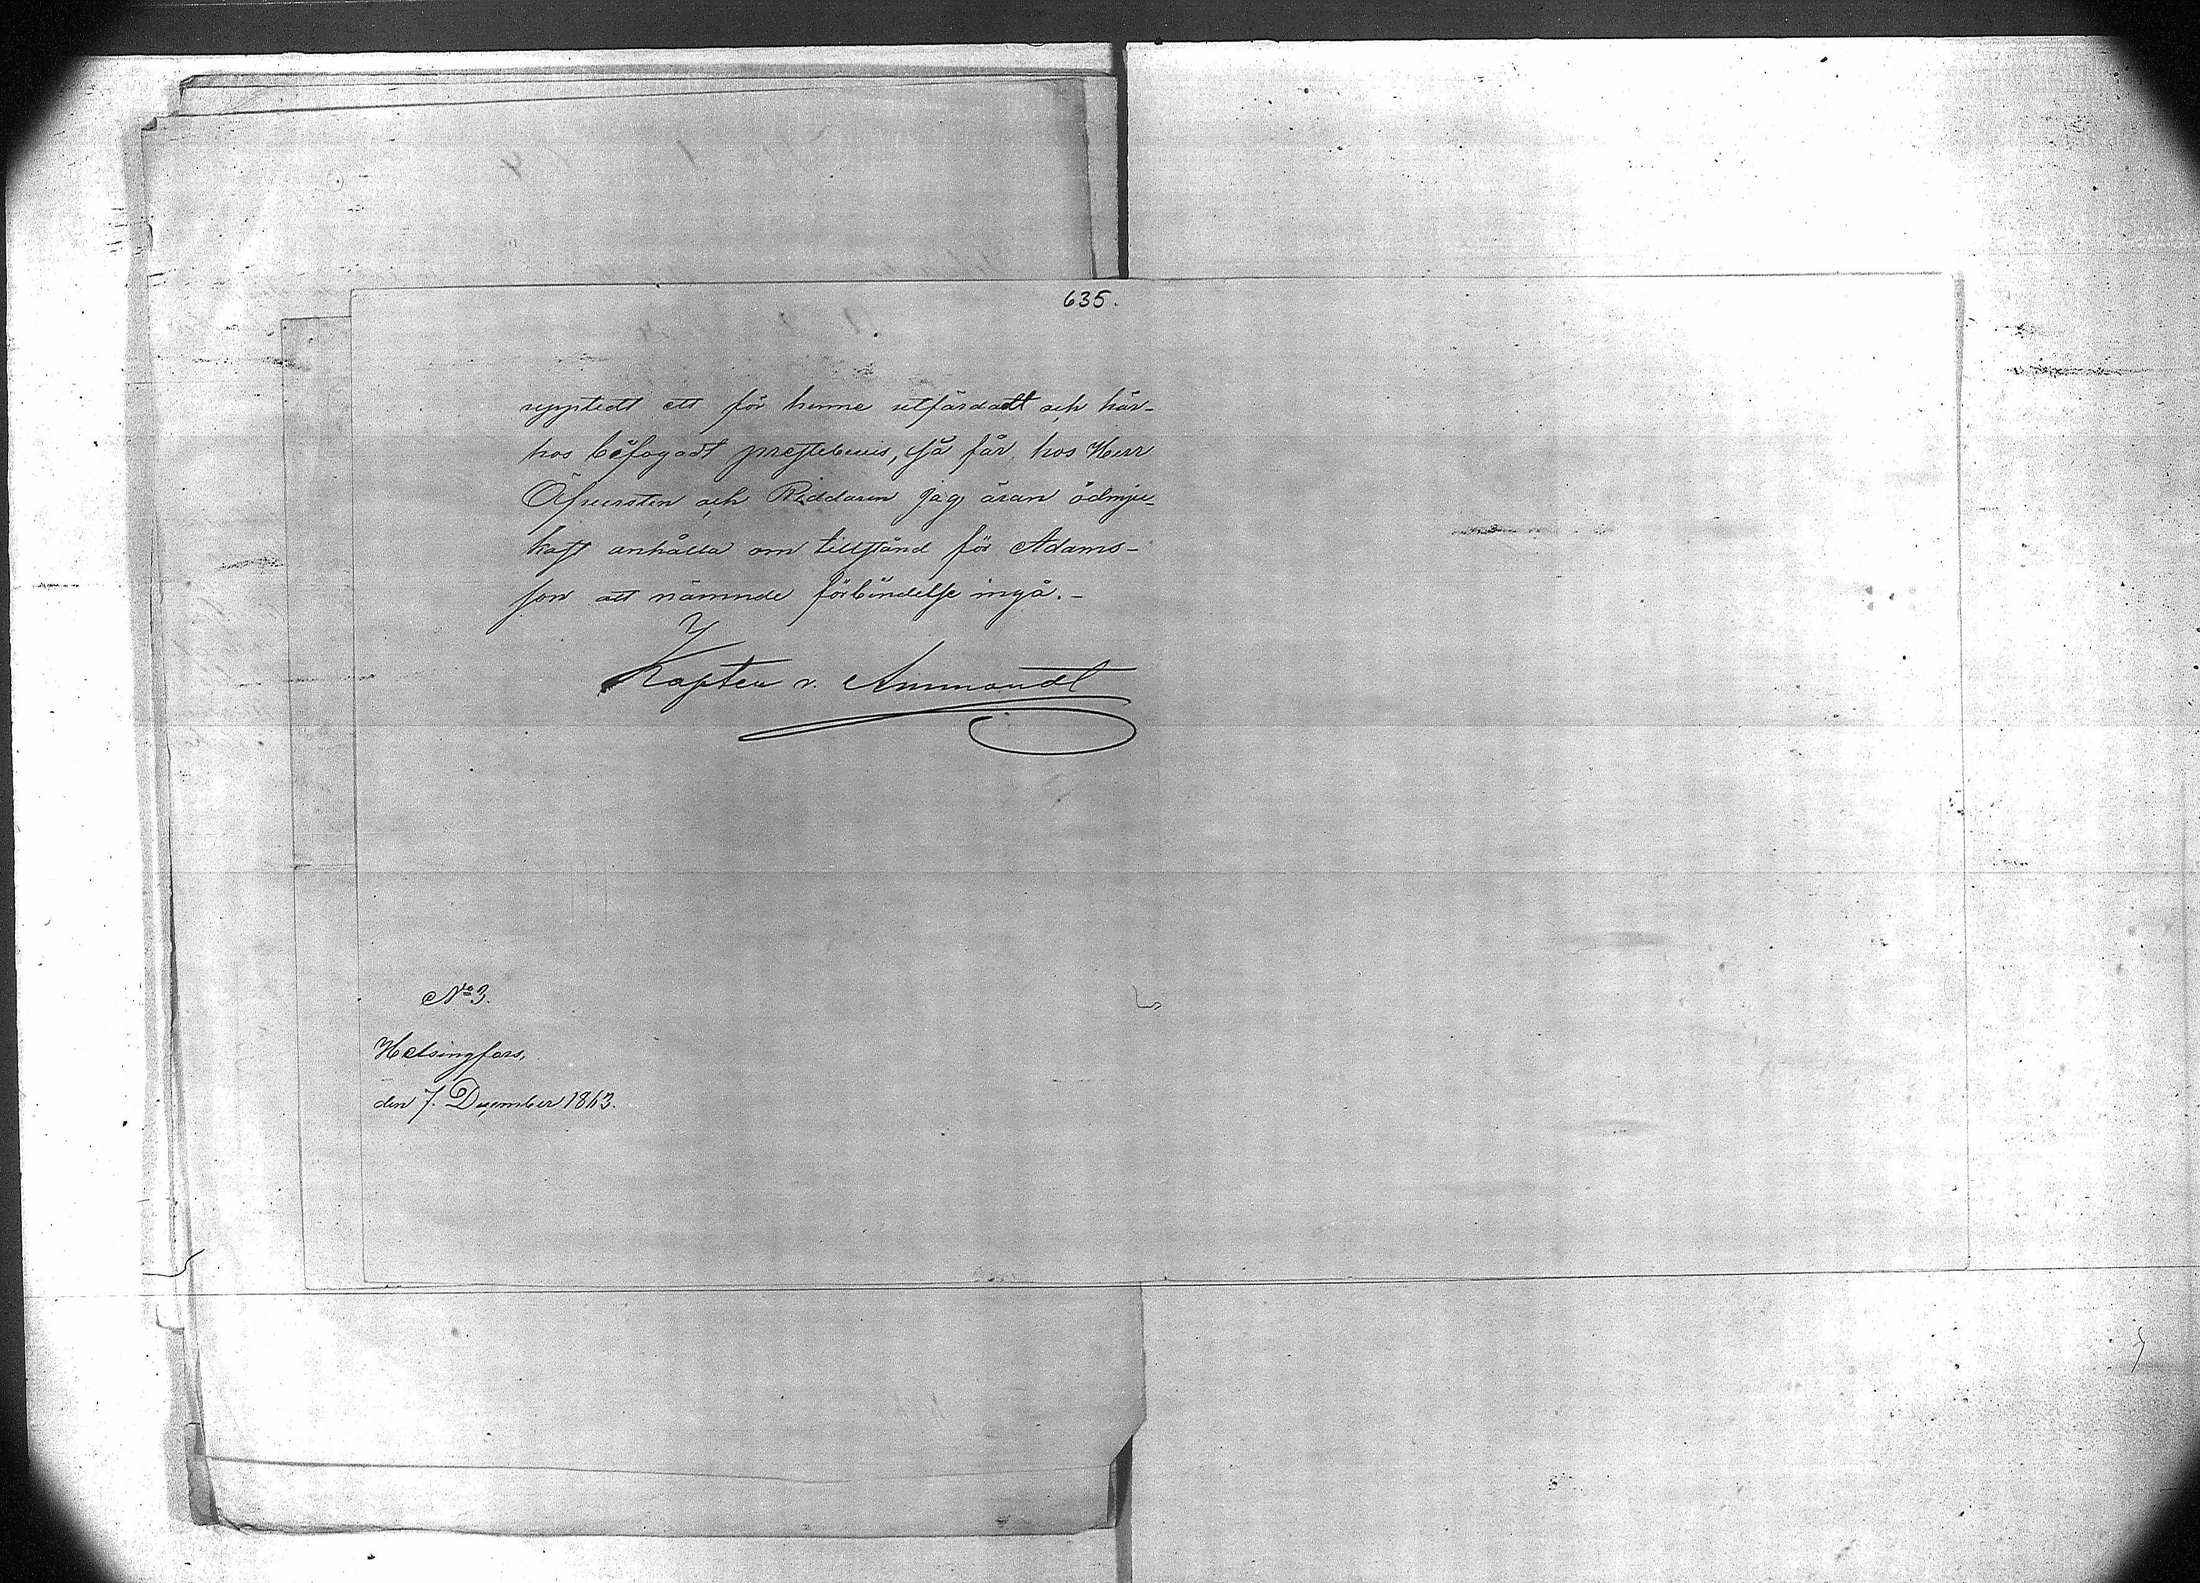 635.
uppstedt ett för henne utfärdadt och här-
hos bifogadt prestebevis, så får hos Herr
Öfversten och Riddaren jag äran ödmju-
kast anhålla om tillstånd för Adams-
son att nämnde förbindelse ingå.-
Kapten v. Ammondt
No 3.
Helsingfors,
den 7. December 1863.